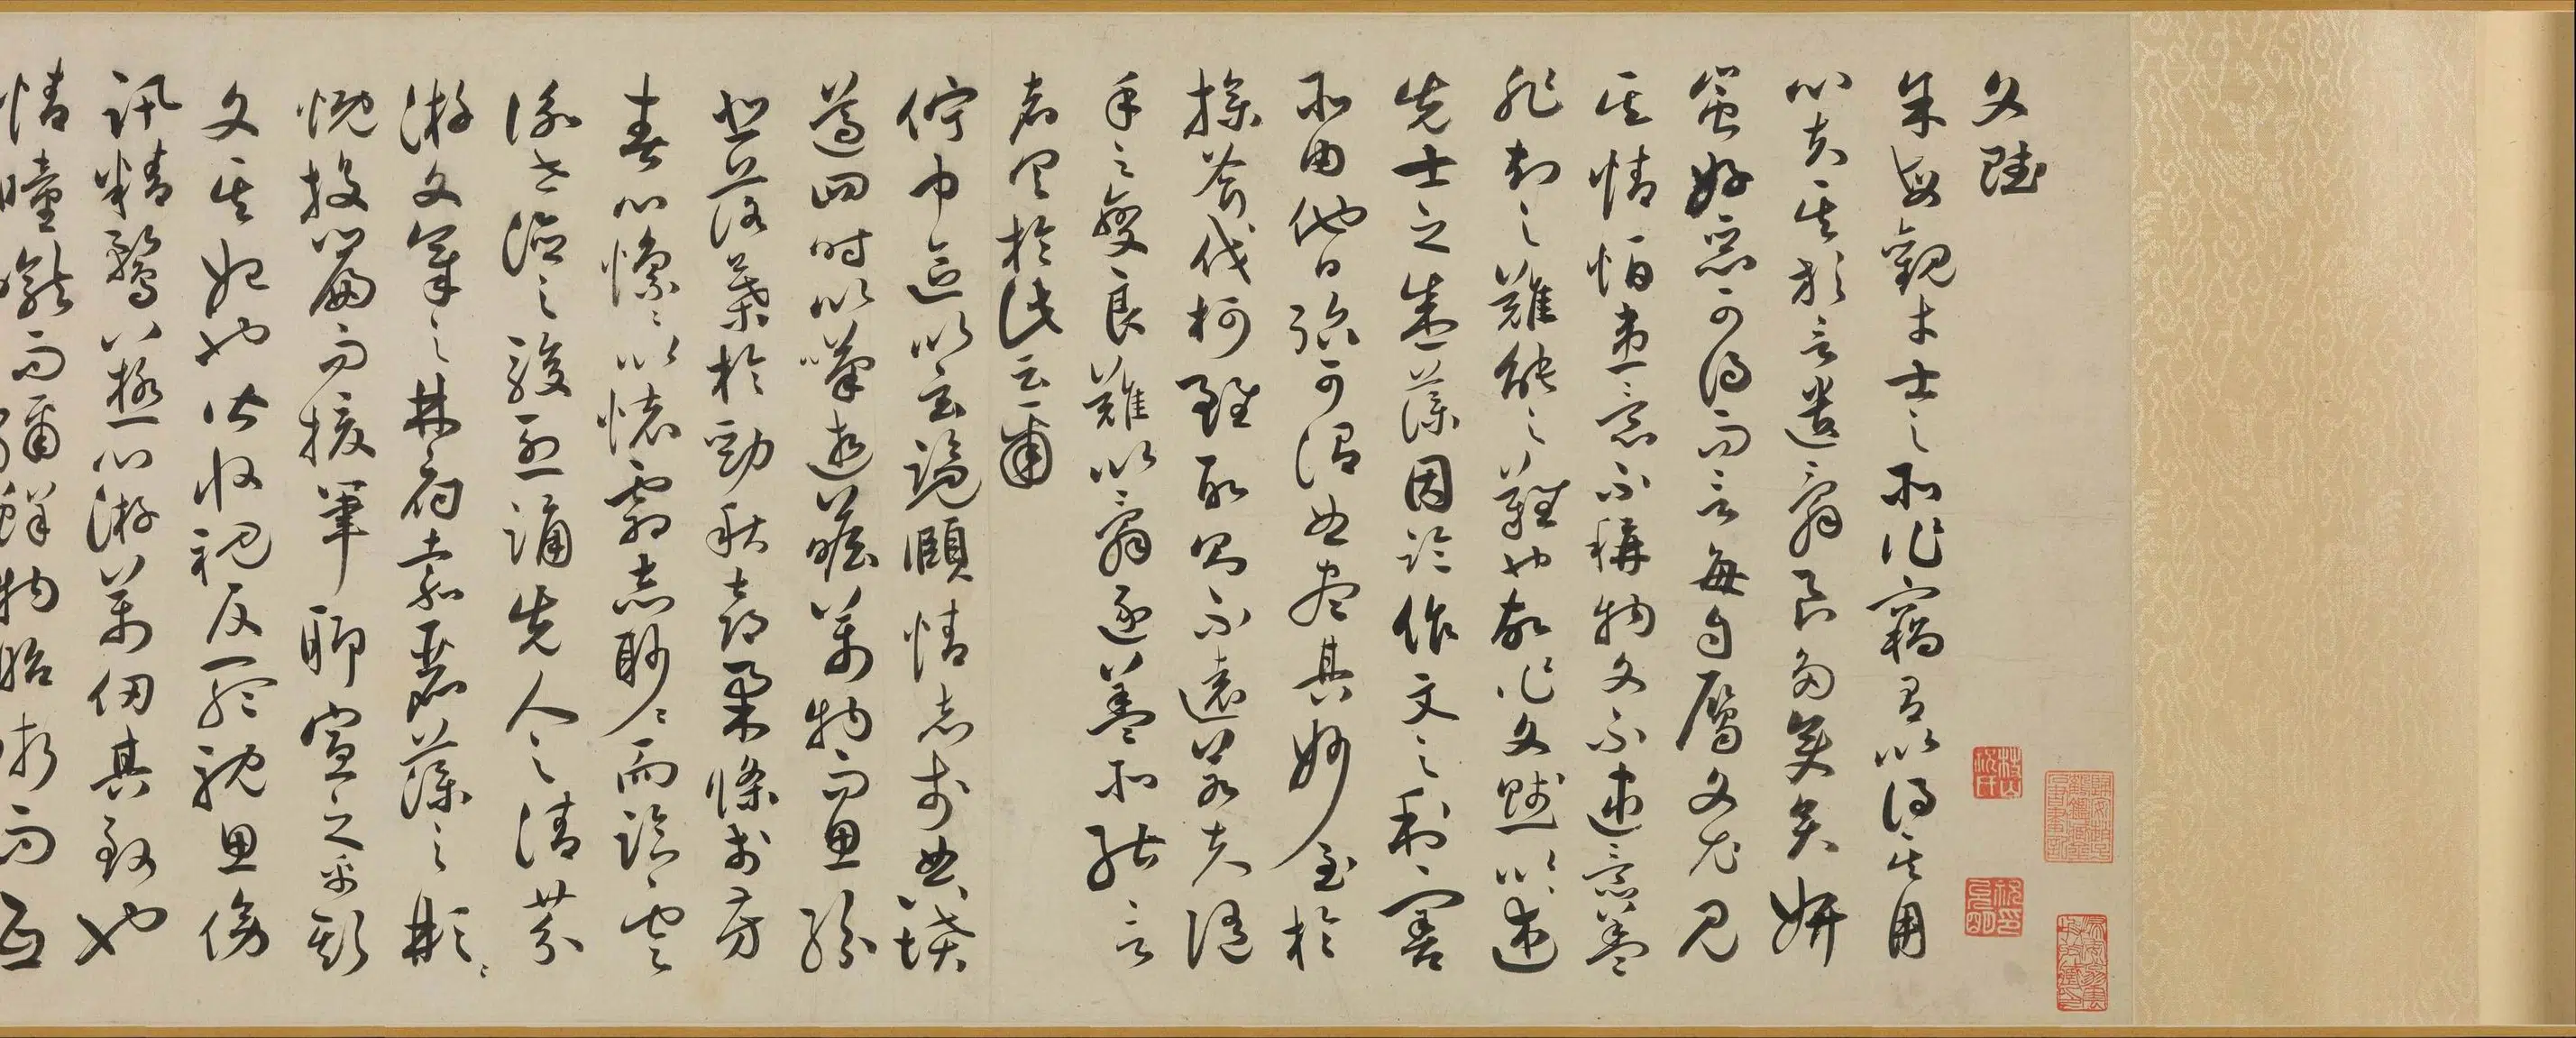 文賦
余每觀才士之所作竊有以得其用
心夫其放言遣辭良多變矣妍
蚩好惡可得而言每自屬文尤見
其情恒患意不稱物文不逮意蓋
非知之難能之難也故作文賦以述
先士之盛藻因論作文之利害
所由他日殆可謂曲盡其妙至於
操斧伐柯雖取則不遠若夫隨
手之變良難以辭逐蓋所能言
者具於此云爾
佇中區以玄覽頤情志於典墳
遵四時以嘆逝瞻萬物而思紛
悲落葉於勁秋喜柔條於芳
春心懍懍以懷霜志眇眇而臨雲
詠世德之駿烈誦先人之清芬
游文章之林府嘉麗藻之彬彬
慨投篇而援筆聊宣之乎斯
文其始也皆收視反聽耽思傍
訊精騖八極心游萬仞其致也
情曈曨而彌鮮物昭晰而互